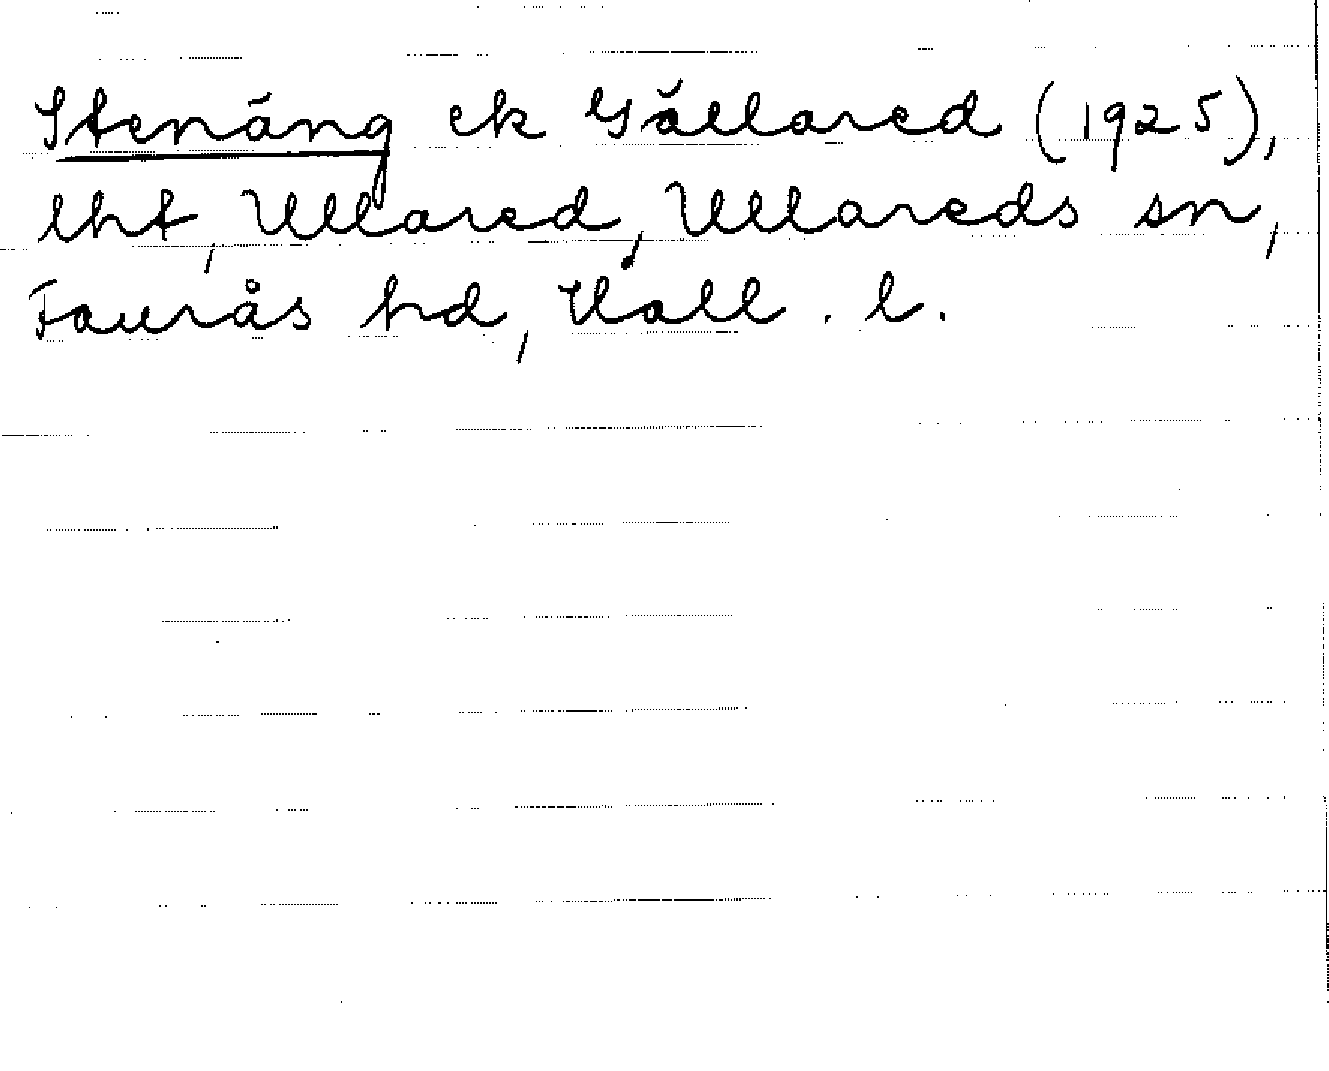 Stenäng ek Gällared (1925),
lht, Ullared, Ullareds sn,
Faurås hd, Hall. l.